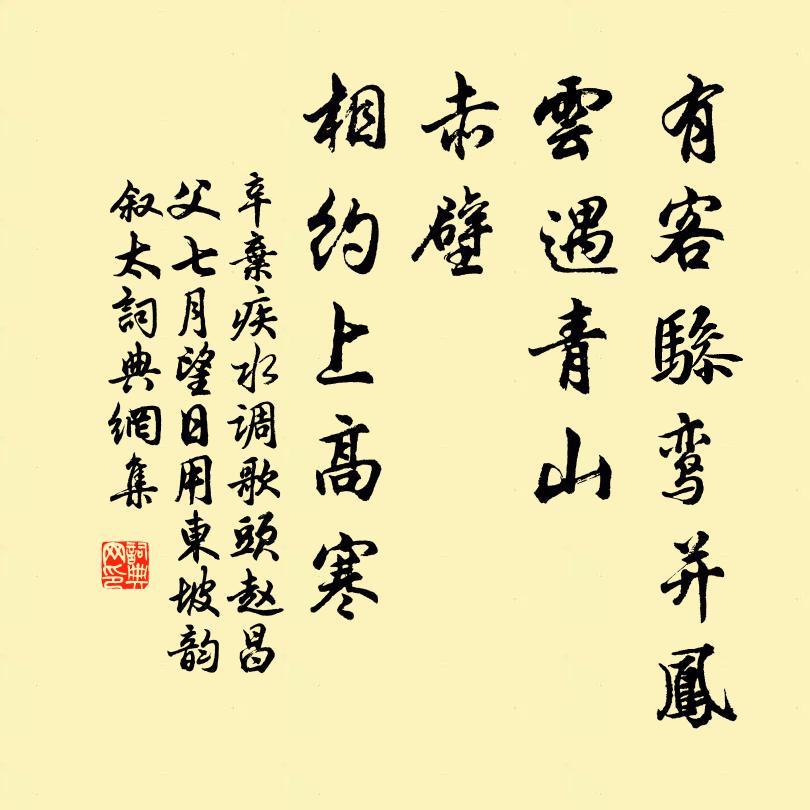 有客驂鸾并鳳
雲遇青山
赤壁
相约上高寒
辛棄疾水调歌頭赵昌
父七月望日用東坡韵
叙太詞典網集
詞典
网印